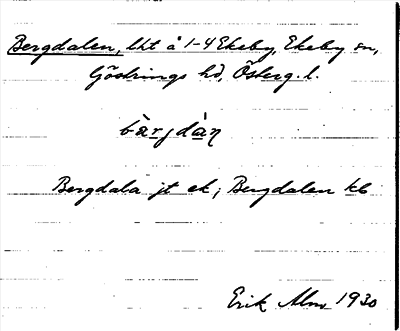 Bergdalen, lht å 1-4 Ekeby, Ekeby sn,
Göstrings hd, Österg. l.
bàrjdàn
Bergdala jt ek; Bergdalen kb
Erik Alm 1930